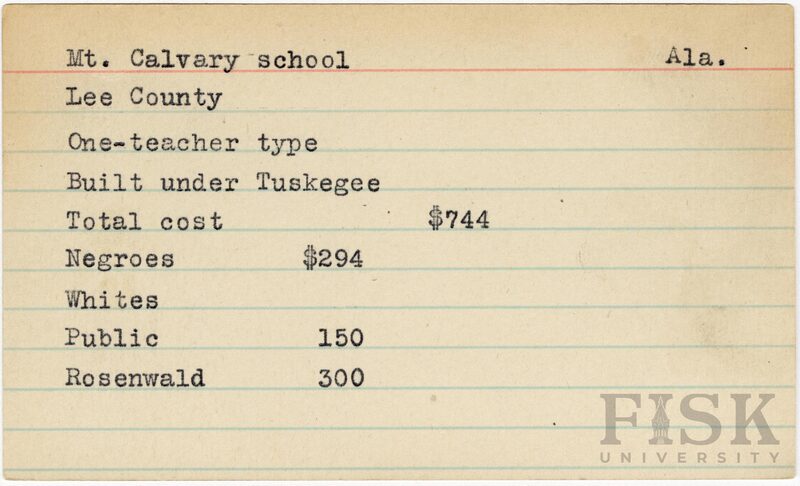 Mt. Calvary school Ala.
Lee County
One-teacher type
Built under Tuskegee
Total cost $744
Negroes $294
Whites
Public 150
Rosenwald 300
FISK
UNIVERSITY